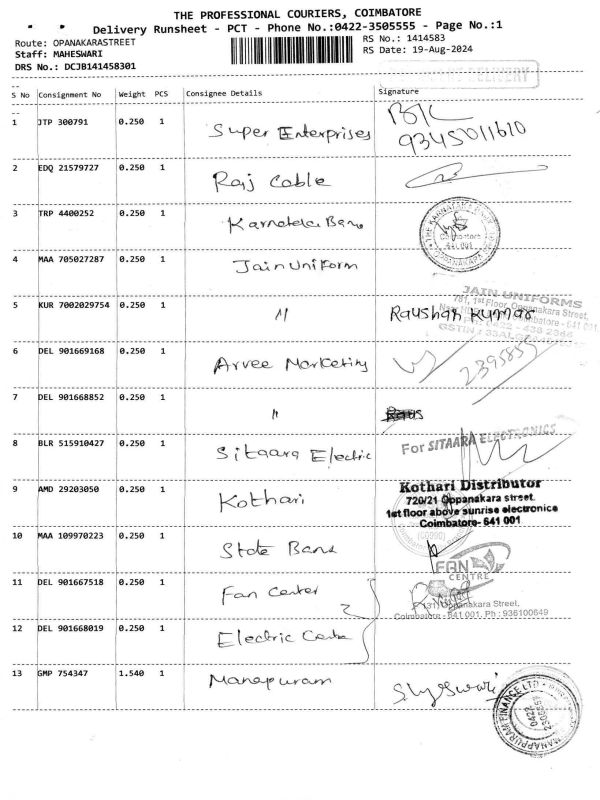 THE PROFESSIONAL COURIERS, COIMBATORE
Delivery Runsheet - PCT - Phone No.:0422-3505555 - Page No.:1
Route: OPANAKARASTREET
RS No.: 1414583
Staff: MAHESWARI
RS Date: 19-Aug-2024
DRS No.: DCJB141458301
S No Consignment No Weight PCS Consignee Details Signature
1 JTP 300791 0.250 1 Super Enterprises
9345011610
2 EDQ 21579727 0.250 1 Raj Cable
3 TRP 4400252 0.250 1 Karnataka Bank
4 MAA 705027287 0.250 1 Jain Uniform
JAIN UNIFORMS
781, 1st Floor, Oppanakara Street,
5 KUR 7002029754 0.250 1 〃 Raushan Kumar
Coimbatore - 641 001
6 DEL 901669168 0.250 1 Arvee Marketing
2395855
7 DEL 901668852 0.250 1 〃
8 BLR 515910427 0.250 1 Sitaara Electric For SITAARA ELECTRONICS
9 AMD 29203050 0.250 1 Kothari
Kothari Distributor
720/21 Oppanakara street.
1st floor above sunrise electronice
Coimbatore- 641 001
10 MAA 109970223 0.250 1 State Bank
FAN
CENTRE
11 DEL 901667518 0.250 1 Fan Center
Oppanakara Street,
Coimbatore - 641 001. Ph : 936100649
12 DEL 901668019 0.250 1 Electric Cente
13 GMP 754347 1.540 1 Manapuram
MANAPPURAM FINANCE LTD
0422